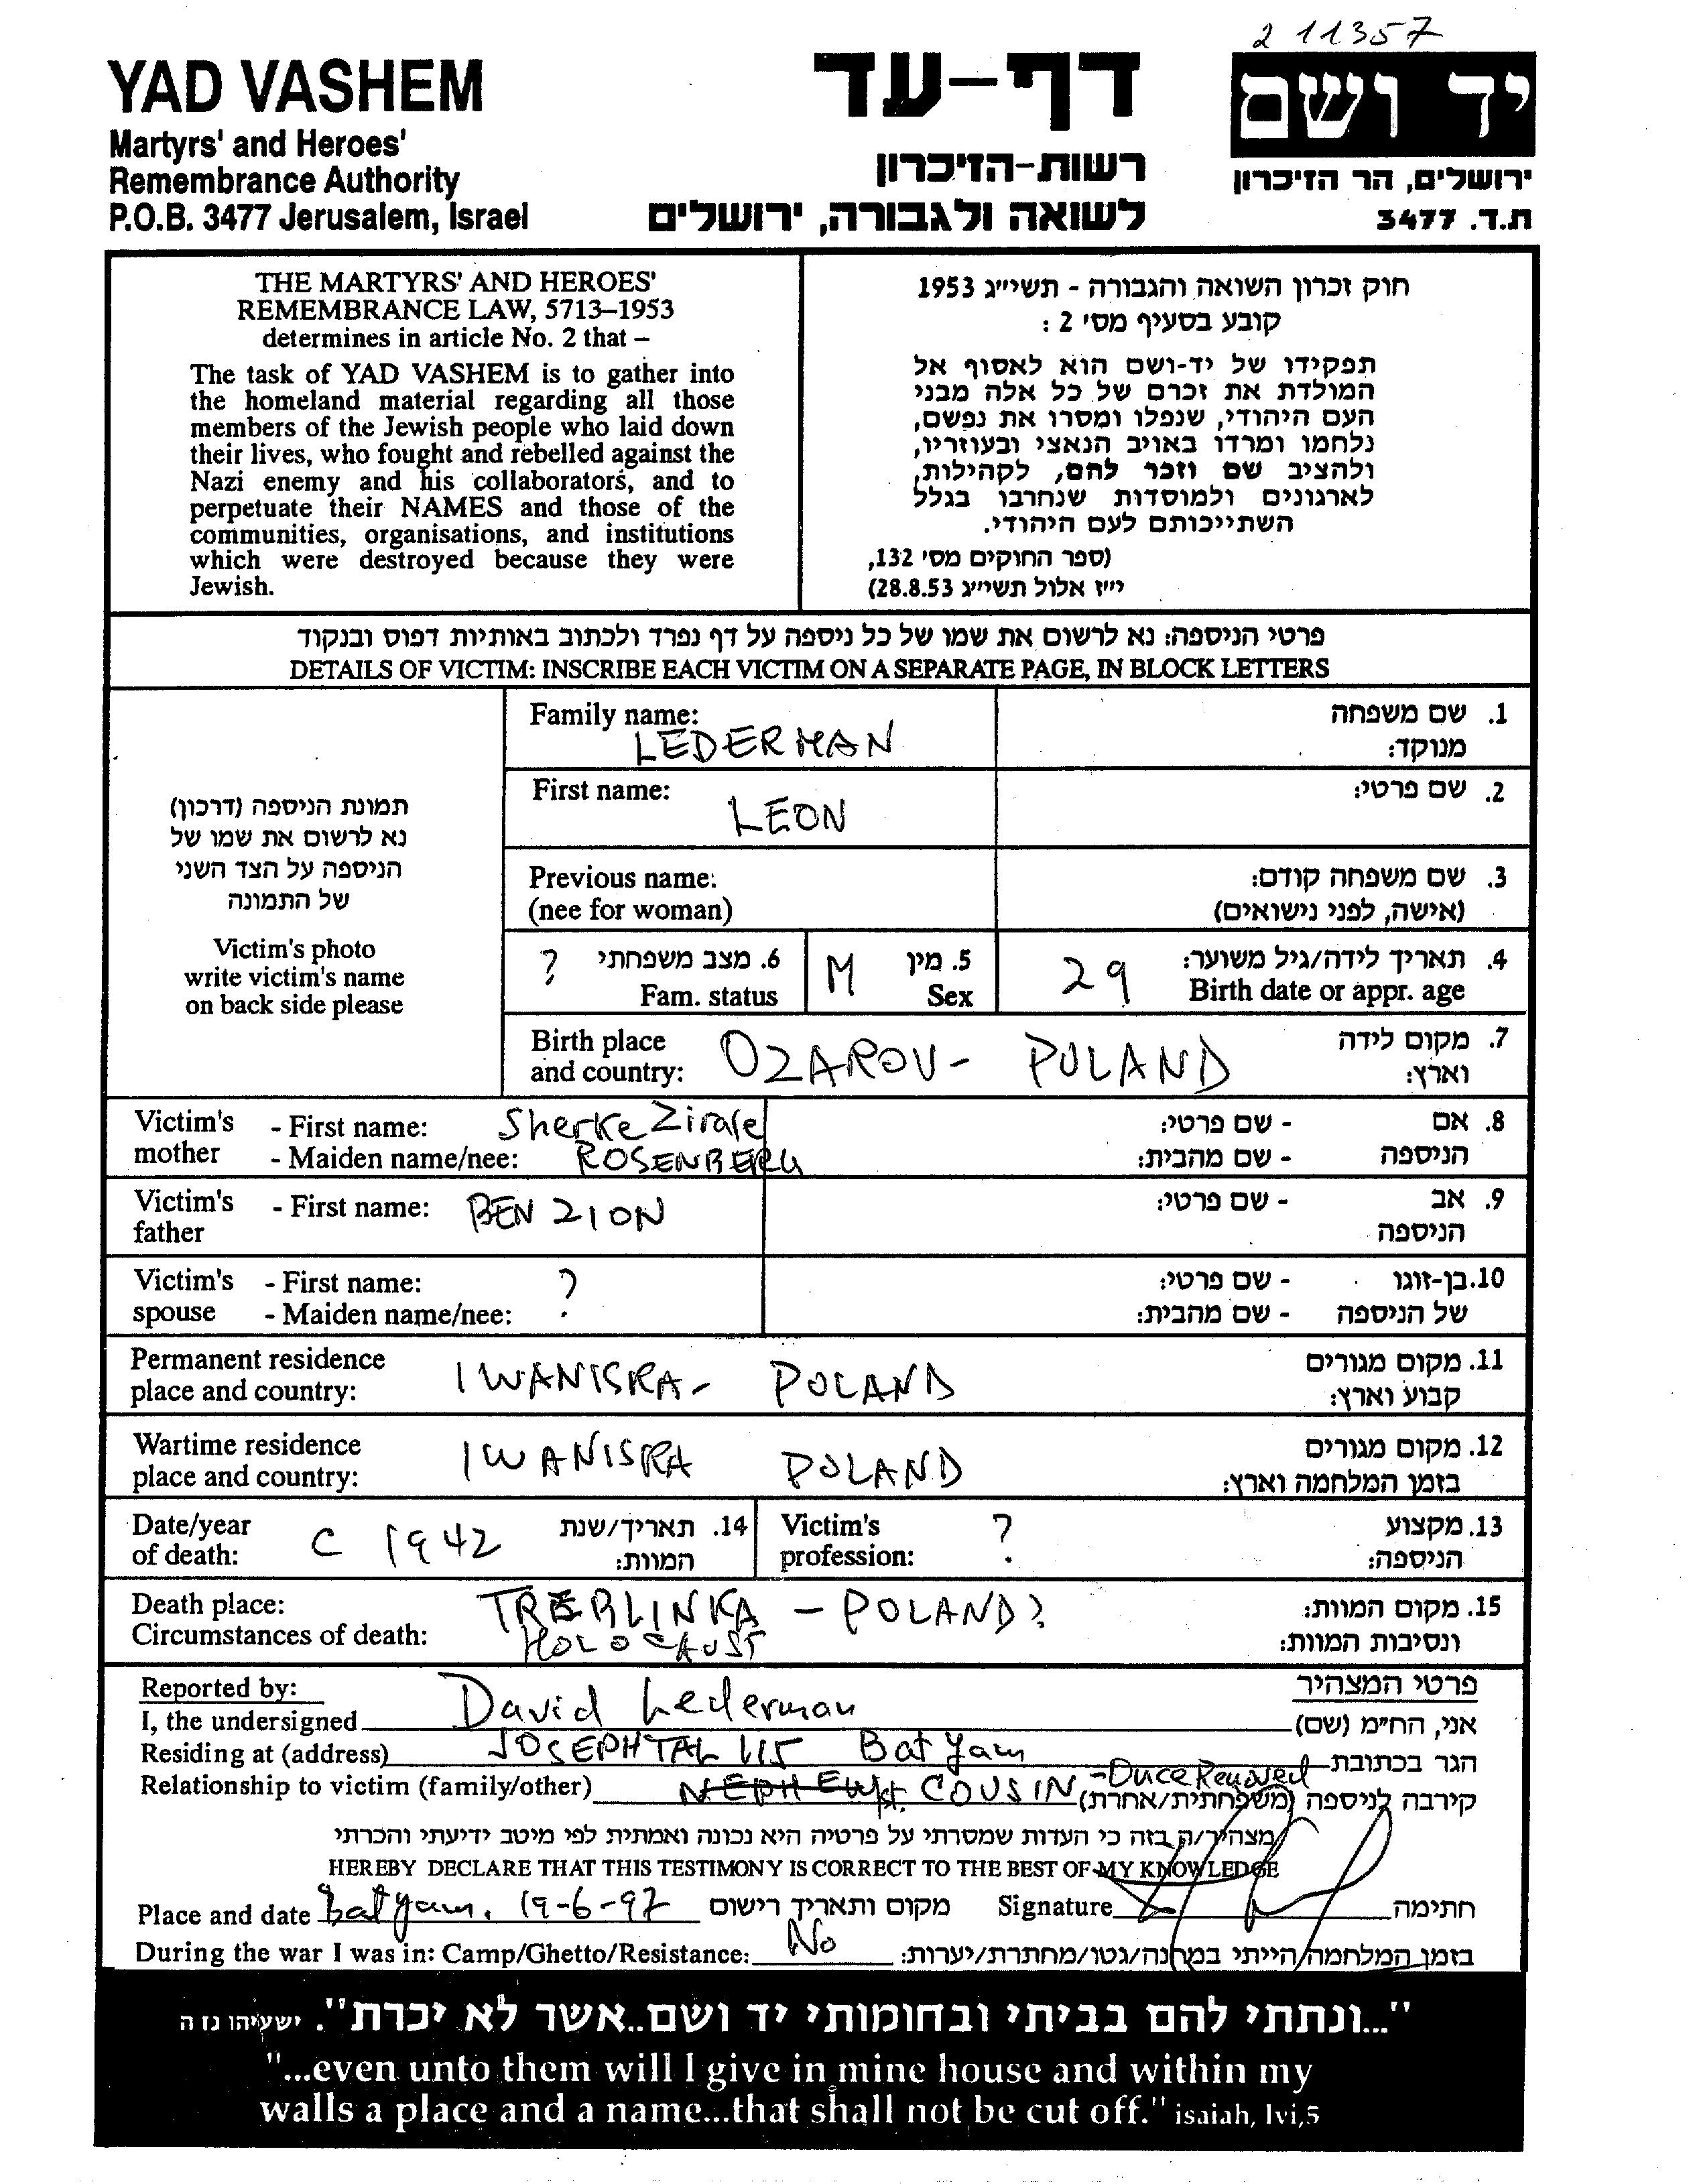 2 11357
YAD VASHEM
Martyrs' and Heroes'
Remembrance Authority
P.O.B. 3477 Jerusalem, Israel
דף-עד
רשות-הזיכרון
לשואה ולגבורה, ירושלים
יד ושם
ירושלים, הר הזיכרון
ת.ד. 3477
THE MARTYRS' AND HEROES'
REMEMBRANCE LAW, 5713–1953
determines in article No. 2 that –
The task of YAD VASHEM is to gather into
the homeland material regarding all those
members of the Jewish people who laid down
their lives, who fought and rebelled against the
Nazi enemy and his collaborators, and to
perpetuate their NAMES and those of the
communities, organisations, and institutions
which were destroyed because they were
Jewish.
חוק זכרון השואה והגבורה - תשי״ג 1953
קובע בסעיף מס׳ 2 :
תפקידו של יד-ושם הוא לאסוף אל
המולדת את זכרם של כל אלה מבני
העם היהודי, שנפלו ומסרו את נפשם,
נלחמו ומרדו באויב הנאצי ובעוזריו,
ולהציב שם וזכר להם, לקהילות,
לארגונים ולמוסדות שנחרבו בגלל
השתייכותם לעם היהודי.
(ספר החוקים מס׳ 132,
י״ז אלול תשי״ג 28.8.53)
פרטי הניספה: נא לרשום את שמו של כל ניספה על דף נפרד ולכתוב באותיות דפוס ובנקוד
DETAILS OF VICTIM: INSCRIBE EACH VICTIM ON A SEPARATE PAGE, IN BLOCK LETTERS
תמונת הניספה (דרכון)
נא לרשום את שמו של
הניספה על הצד השני
של התמונה
Victim's photo
write victim's name
on back side please
Family name: 1. שם משפחה
LEDERMAN מנוקד:
First name: 2. שם פרטי:
LEON
Previous name: 3. שם משפחה קודם:
(nee for woman) (אישה, לפני נישואים)
? 6. מצב משפחתי M 5. מין 29 4. תאריך לידה/גיל משוער:
Fam. status Sex Birth date or appr. age
Birth place OZAROV - POLAND 7. מקום לידה
and country: וארץ:
Victim's - First name: Sherke - שם פרטי: 8. אם
mother - Maiden name/nee: ROSENBERG - שם מהבית: הניספה
Victim's - First name: BEN ZION - שם פרטי: 9. אב
father הניספה
Victim's - First name: ? - שם פרטי: 10. בן-זוגו
spouse - Maiden name/nee: - שם מהבית: של הניספה
Permanent residence IWANISRA - POLAND 11. מקום מגורים
place and country: קבוע וארץ:
Wartime residence IWANISRA POLAND 12. מקום מגורים
place and country: בזמן המלחמה וארץ:
Date/year C 1942 14. תאריך/שנת Victim's ? 13. מקצוע
of death: המוות: profession: הניספה:
Death place: TREBLINKA - POLAND? 15. מקום המוות:
Circumstances of death: HOLOCAUST ונסיבות המוות:
Reported by: פרטי המצהיר
I, the undersigned David Lederman אני, החי״מ (שם)
Residing at (address) JOSEPHTAL 115 Bat Yam הגר בכתובת
Relationship to victim (family/other) COUSIN - Once Removed קירבה לניספה (משפחתית/אחרת)
מצהיר/ה בזה כי העדות שמסרתי על פרטיה היא נכונה ואמתית לפי מיטב ידיעתי והכרתי
HEREBY DECLARE THAT THIS TESTIMONY IS CORRECT TO THE BEST OF MY KNOWLEDGE
Place and date Bat Yam. 19-6-97 מקום ותאריך רישום Signature חתימה
During the war I was in: Camp/Ghetto/Resistance: No בזמן המלחמה הייתי במחנה/גטו/מחתרת/יערות:
"...ונתתי להם בביתי ובחומותי יד ושם..אשר לא יכרת". ישעיהו נז ה
"...even unto them will I give in mine house and within my
walls a place and a name...that shall not be cut off." isaiah, lvi,5